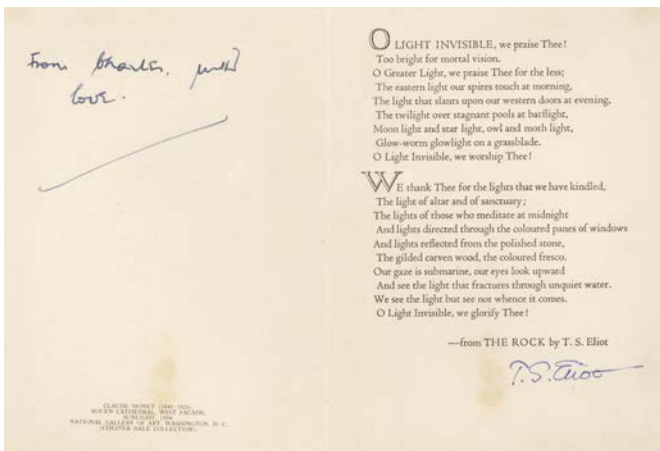 From Charles, with
love.
CLAUDE MONET (1840-1926)
ROUEN CATHEDRAL, WEST FACADE,
SUNLIGHT, 1894
NATIONAL GALLERY OF ART, WASHINGTON, D. C.
(CHESTER DALE COLLECTION).
O LIGHT INVISIBLE, we praise Thee!
Too bright for mortal vision.
O Greater Light, we praise Thee for the less;
The eastern light our spires touch at morning,
The light that slants upon our western doors at evening,
The twilight over stagnant pools at batflight,
Moon light and star light, owl and moth light,
Glow-worm glowlight on a grassblade.
O Light Invisible, we worship Thee!
WE thank Thee for the lights that we have kindled,
The light of altar and of sanctuary;
The lights of those who meditate at midnight
And lights directed through the coloured panes of windows
And lights reflected from the polished stone,
The gilded carven wood, the coloured fresco.
Our gaze is submarine, our eyes look upward
And see the light that fractures through unquiet water.
We see the light but see not whence it comes.
O Light Invisible, we glorify Thee!
—from THE ROCK by T. S. Eliot
T. S. Eliot